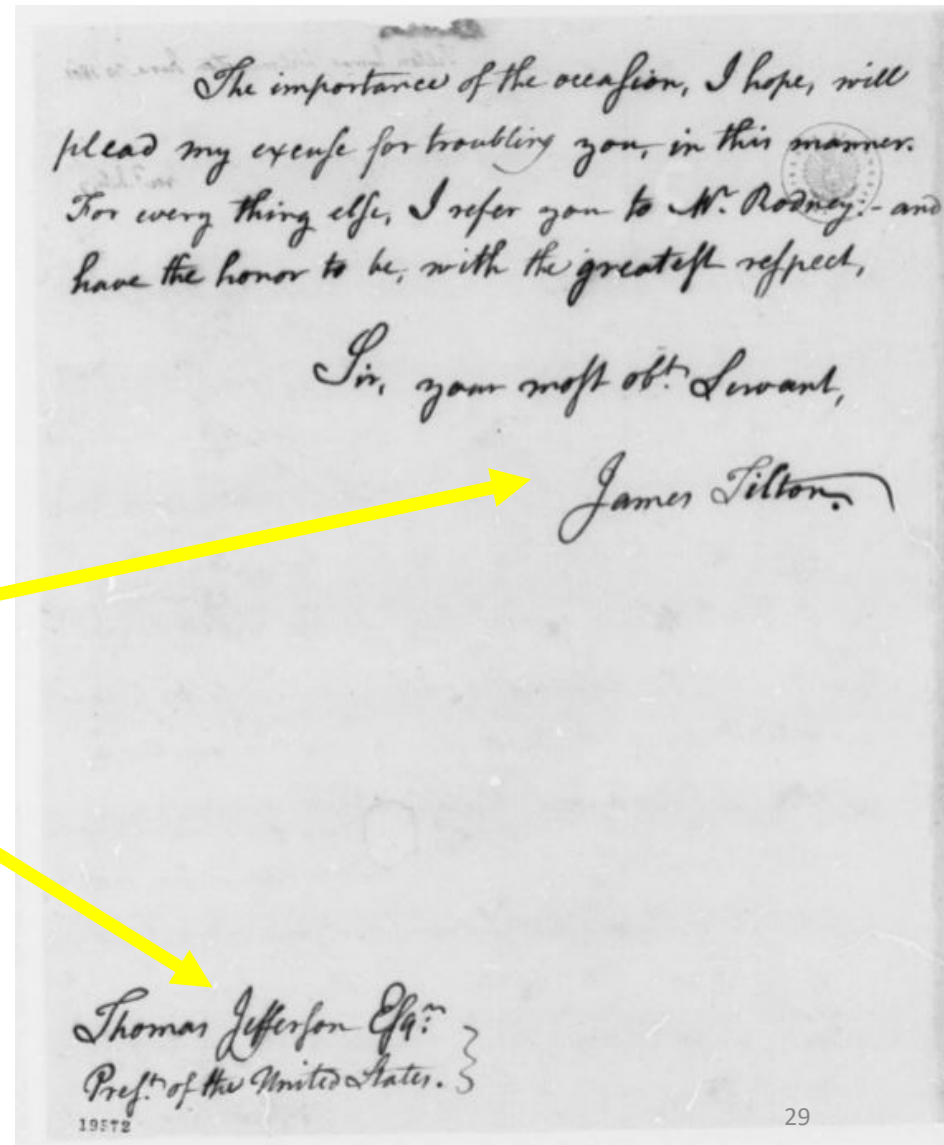 The importance of the occasion, I hope, will
plead my excuse for troubling you, in this manner.
For every thing else, I refer you to Mr. Rodney:- and
have the honor to be, with the greatest respect,
Sir, your most obt. Servant,
James Tilton.
Thomas Jefferson Esqr.
Prest. of the United States.
19572
29